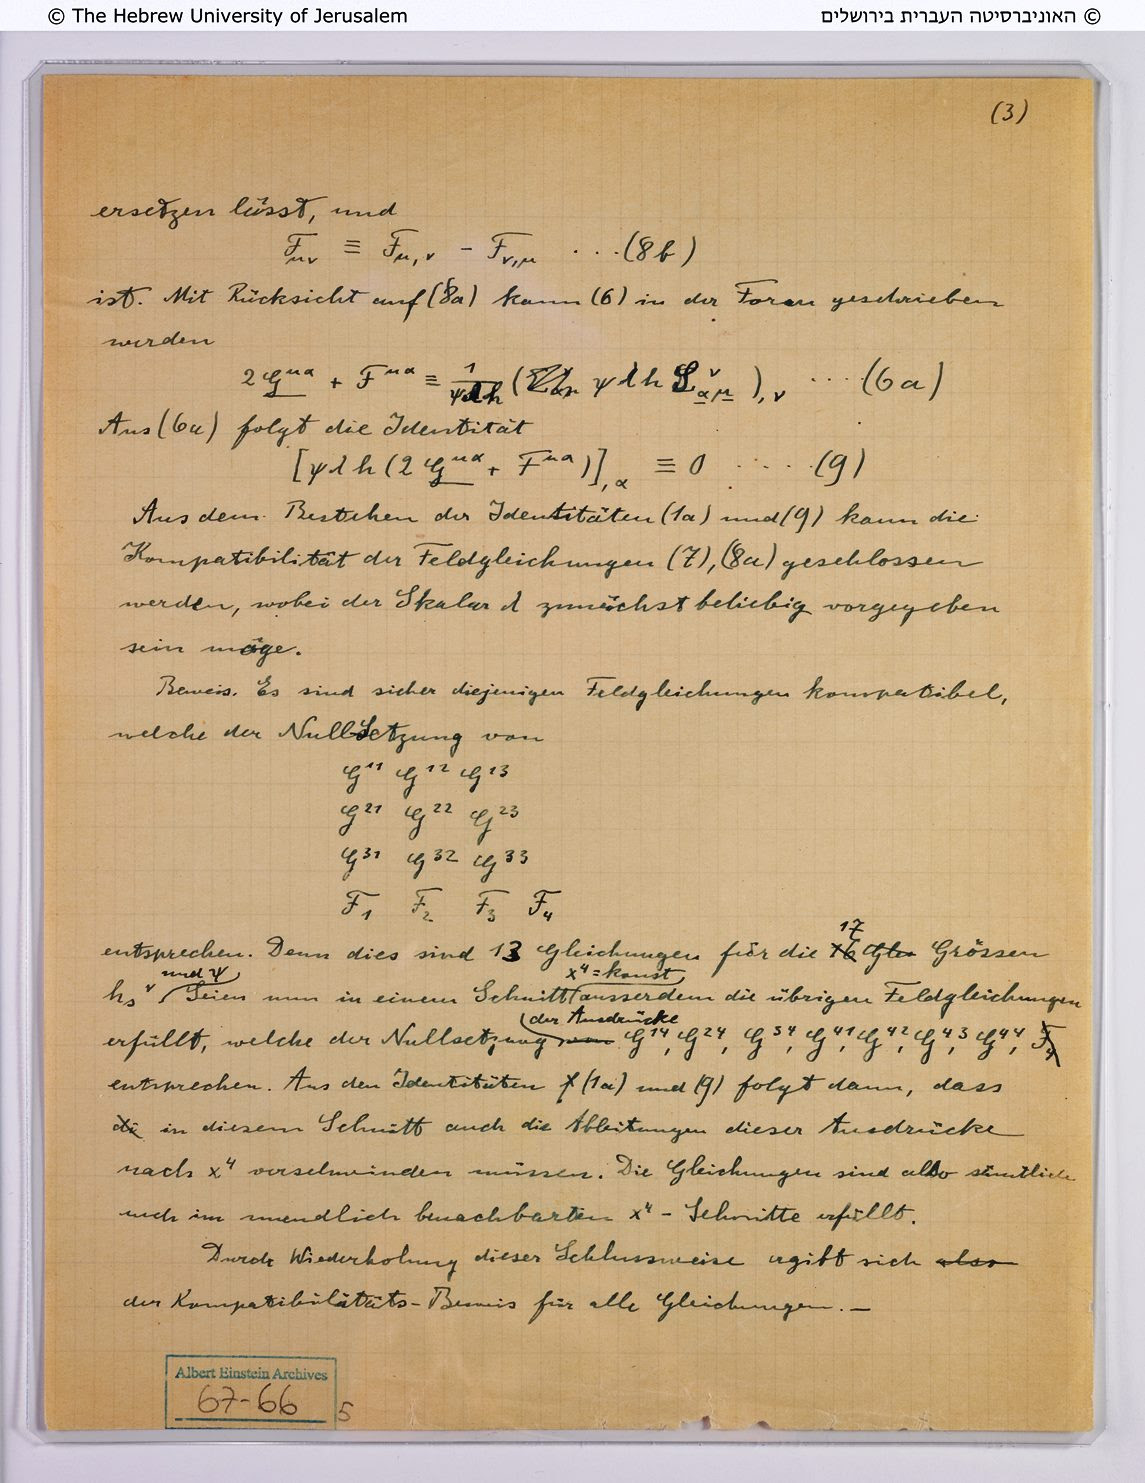 © The Hebrew University of Jerusalem
© האוניברסיטה העברית בירושלים
(3)
ersetzen lässt, und
F_μν ≡ F_μ,ν - F_ν,μ ... (8b)
ist. Mit Rücksicht auf (8a) kann (6) in der Form geschrieben
werden
2 G^μα + F^μα ≡ 1/ψλh ( ψ λ h L^ν_αμ ),ν ... (6a)
Aus (6a) folgt die Identität
[ψ λ h (2 G^μα + F^μα)],α ≡ 0 ..... (9)
Aus dem Bestehen der Identitäten (1a) und (9) kann die
Kompatibilität der Feldgleichungen (7), (8a) geschlossen
werden, wobei der Skalar λ zunächst beliebig vorgegeben
sein möge.
Beweis. Es sind sicher diejenigen Feldgleichungen kompatibel,
welche der Nullsetzung von
G^11 G^12 G^13
G^21 G^22 G^23
G^31 G^32 G^33
F_1 F_2 F_3 F_4
17
entsprechen. Denn dies sind 13 Gleichungen für die 16 Grössen
und ψ x^4 = konst
h_s^ν. Seien nun in einem Schnitt ausserdem die übrigen Feldgleichungen
der Ausdrücke
erfüllt, welche der Nullsetzung von G^14, G^24, G^34, G^41, G^42, G^43, G^44, F_4
entsprechen. Aus den Identitäten (1a) und (9) folgt dann, dass
di in diesem Schnitt auch die Ableitungen dieser Ausdrücke
nach x^4 verschwinden müssen. Die Gleichungen sind also sämtlich
auch im unendlich benachbarten x^4 - Schnitte erfüllt.
Durch Wiederholung dieser Schlussweise ergibt sich also
der Kompatibilitäts-Beweis für alle Gleichungen. —
Albert Einstein Archives
67-66
5